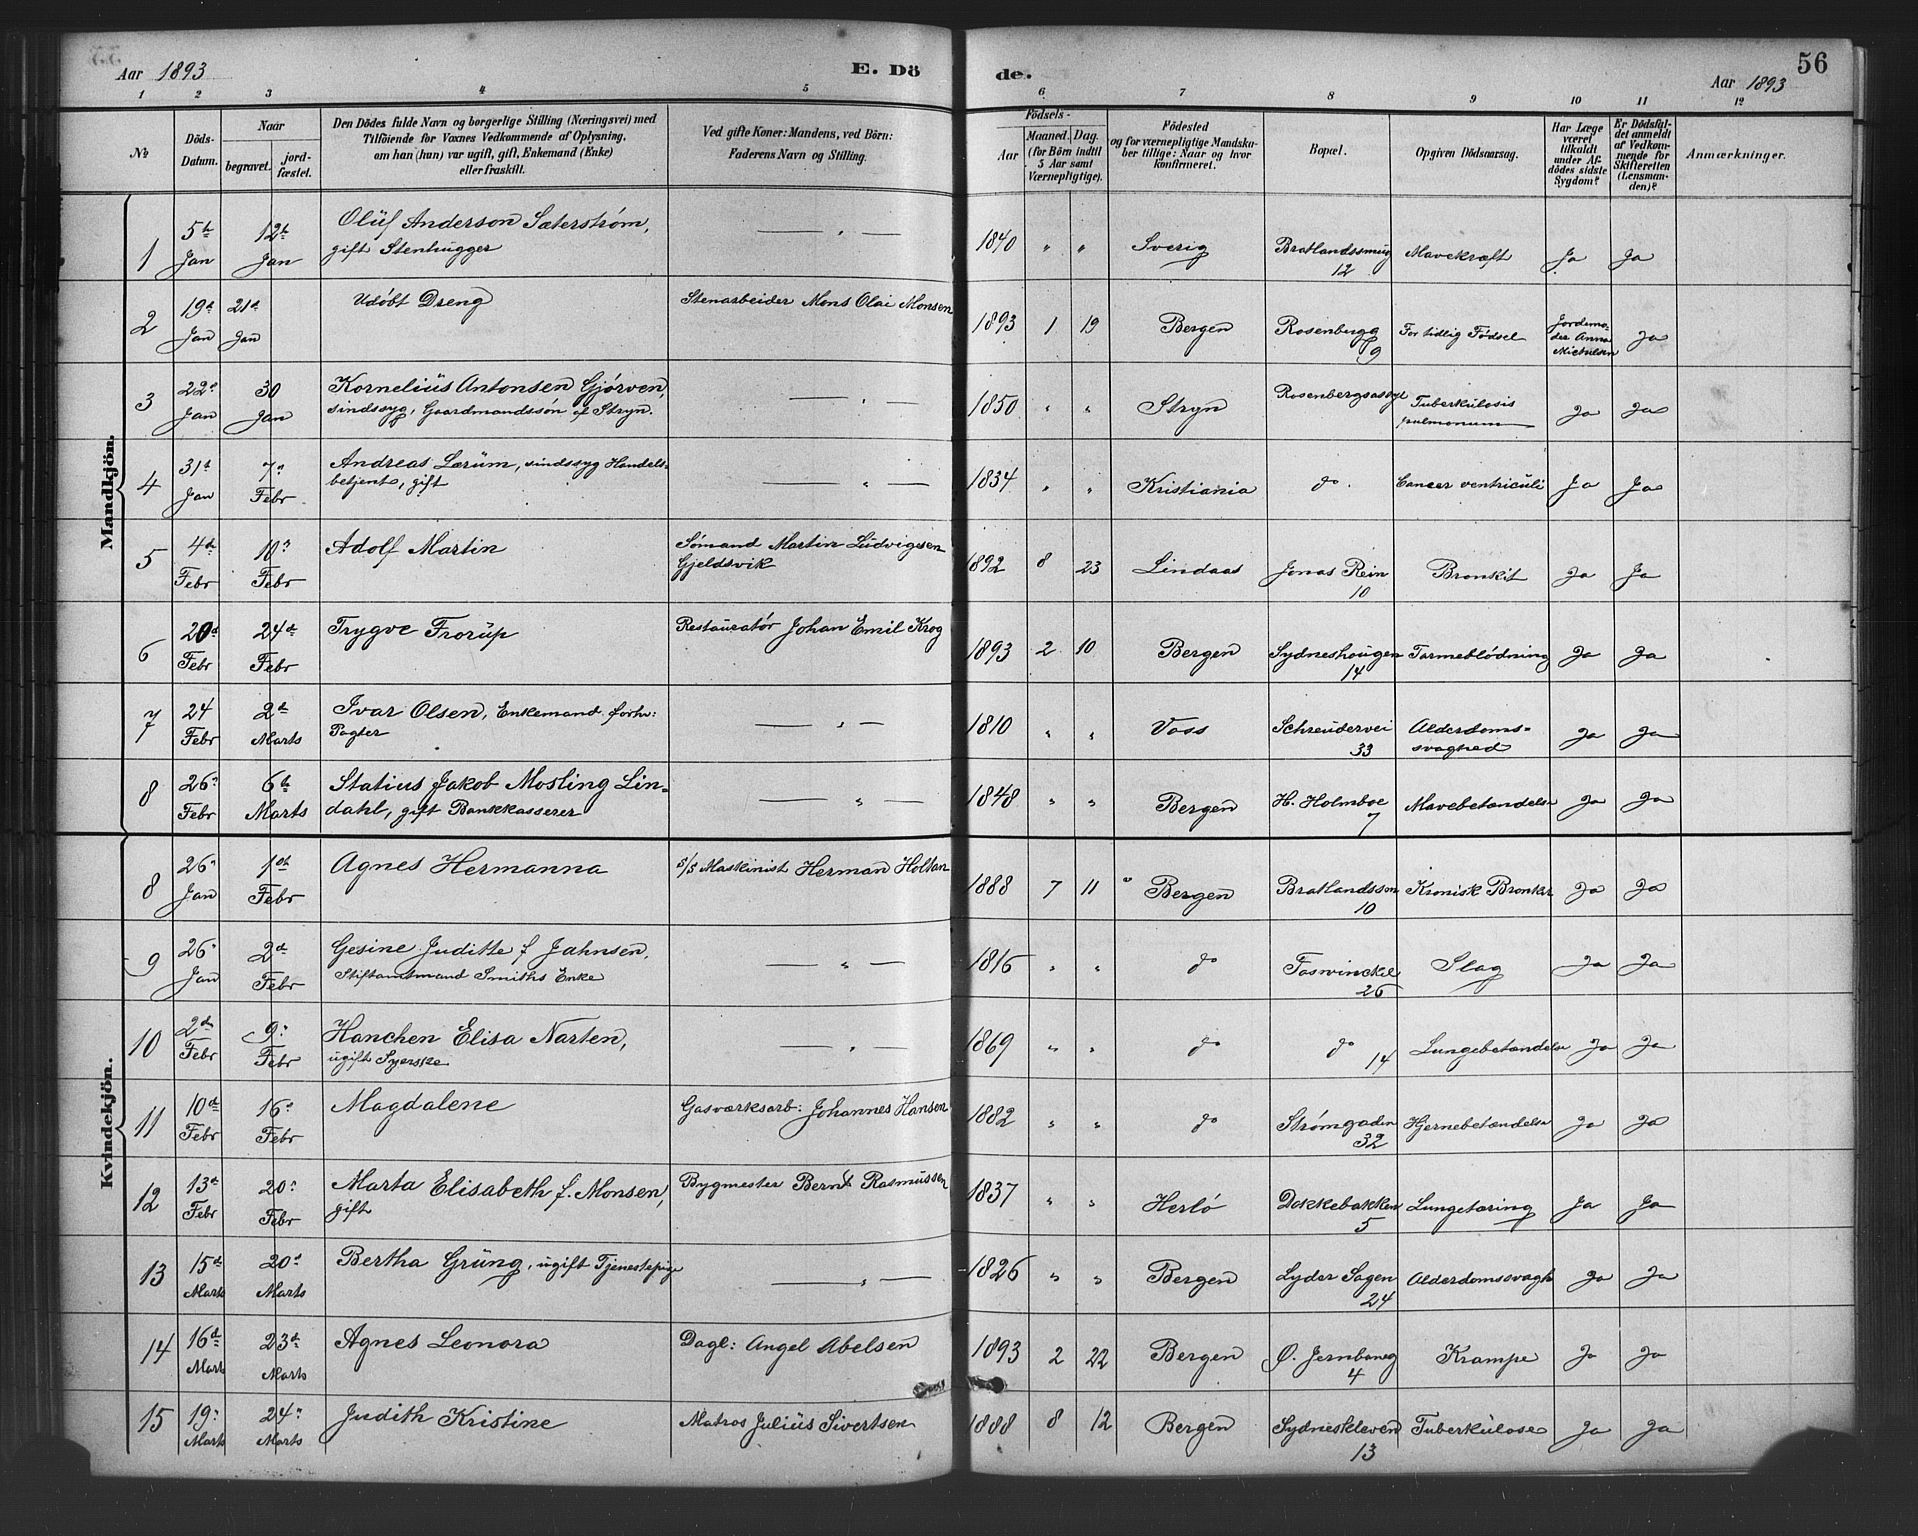 Aar 1893
E. Dö
de.
Aar 1893
56
1 2 3 4 5 6 7 8 9 10 11 12
No
Döds-
Datum.
Naar
begravet.
jord-
fæstet.
Den Dödes fulde Navn og borgerlige Stilling (Næringsvei) med
Tilföiende for Voxnes Vedkommende af Oplysning,
om han (hun) var ugift, gift, Enkemand (Enke)
eller fraskilt.
Ved gifte Koner: Mandens, ved Börn:
Faderens Navn og Stilling.
Födsels-
Aar
Maaned. Dag.
(for Börn indtil
5 Aar samt
Værnepligtige).
Födested
og for værnepligtige Mandska-
ber tillige: Naar og hvor
konfirmeret.
Bopæl.
Opgiven Dödsaarsag.
Har Læge
været
tilkaldt
under Af-
dödes sidste
Sygdom?
Er Dödsfal-
det anmeldt
af Vedkom-
mende for
Skifteretten
(Lensman-
den)?
Anmærkninger.
Mandkjön.
1 5te Jan 12te Jan Olüf Anderson Sæterström,
gift Stenhugger
— „ — 1840 „ „ Sverig Bratlandssmug
12 Mavekræft Ja Ja
2 19de Jan 21de Jan Udöbt Dreng Stenarbeider Mons Olai Monsen 1893 1 19 Bergen Rosenbergg
9 For tidlig Födsel Jordemo-
der Anna
Michelsen Ja
3 22de Jan 30 Jan Kornelius Antonsen Gjörven,
sindssyg, Gaardmandssön af Stryn.
— „ — 1850 „ „ Stryn Rosenbergsasyl Tuberkülosis
pulmonum Ja Ja
4 31te Jan 7de Febr Andreas Lærüm, sindssyg Handels-
betjent, gift
— „ — 1834 „ „ Kristiania do. Cancer ventriculi Ja Ja
5 4de Febr 10de Febr Adolf Martin Sömand Martin Lüdvigsen
Gjeldsvik 1892 8 23 Lindaas Jonas Rein
10 Bronkit Ja Ja
6 20de Febr 24de Febr Trygve Frorüp Restauratör Johan Emil Krog 1893 2 10 Bergen Sydneshougen
14 Tarmeblödning Ja Ja
7 24 Febr 2den Marts Ivar Olsen, Enkemand forhv:
Pagter
— „ — 1810 „ „ Voss Schreudervei
33 Alderdoms-
svaghed Ja Ja
8 26de Febr 6te Marts Statius Jakob Mosling Lin-
dahl, gift Bankkasserer
— „ — 1848 „ „ Bergen H. Holmboe
7 Mavebetændelse Ja Ja
Kvindekjön.
8 26de Jan 1ste Febr Agnes Hermanna s/s Maskinist Herman Holtan 1888 7 11 Bergen Bratlandssm
10 Kronisk Bronkit Ja Ja
9 26de Jan 2den Febr Gesine Juditte f Jahnsen,
Stiftamtmand Smiths Enke
— „ — 1816 „ „ do Foswinckel
26 Slag Ja Ja
10 2den Febr 9de Febr Hanchen Elisa Narten,
ugift Syerske
— „ — 1869 „ „ do do
14 Lungebetændelse Ja Ja
11 10de Febr 16de Febr Magdalene Gasværksarb: Johannes Hansen 1882 „ „ do Strömgaden
32 Hjernebetændelse Ja Ja
12 13de Febr 20de Febr Marta Elisabeth f. Monsen,
gift
Bygmester Bernt Rasmüssen 1837 „ „ Herlö Dokkebakken
5 Lungetæring Ja Ja
13 15de Marts 20de Marts Bertha Grüng, ugift Tjenestepige
— „ — 1826 „ „ Bergen Lyder Sagen
24 Alderdomssvagh Ja Ja
14 16de Marts 23de Marts Agnes Leonora Dagl: Angel Abelsen 1893 2 22 Bergen Ø. Jernbaneg
4 Krampe Ja Ja
15 19de Marts 24de Marts Judith Kristine Matros Juliüs Sivertsen 1888 8 12 Bergen Sydneskleven
13 Tuberkülose Ja Ja